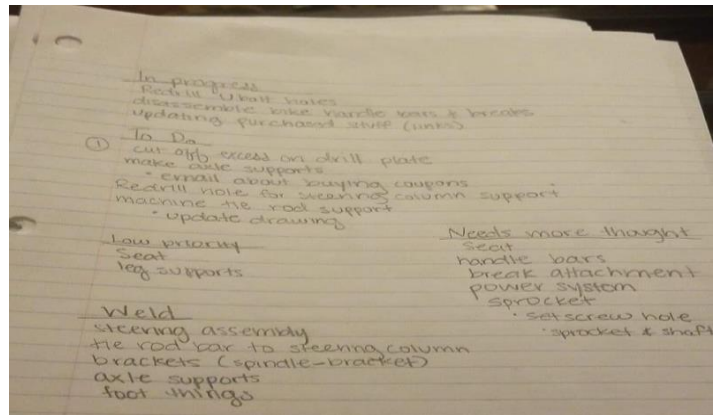 In progress
Redrill Ubolt holes
disassemble bike handle bars & breaks
updating purchased stuff (links)
① To Do
cut off excess on drill plate
make axle supports
• email about buying coupons
Redrill hole for steering column support
machine tie rod support
• update drawing
Low priority
Seat
leg supports
Needs more thought
Seat
handle bars
break attachment
power system
sprocket
• setscrew hole
• sprocket & shaft
Weld
steering assembly
tie rod bar to steering column
brackets (spindle-bracket)
axle supports
foot things